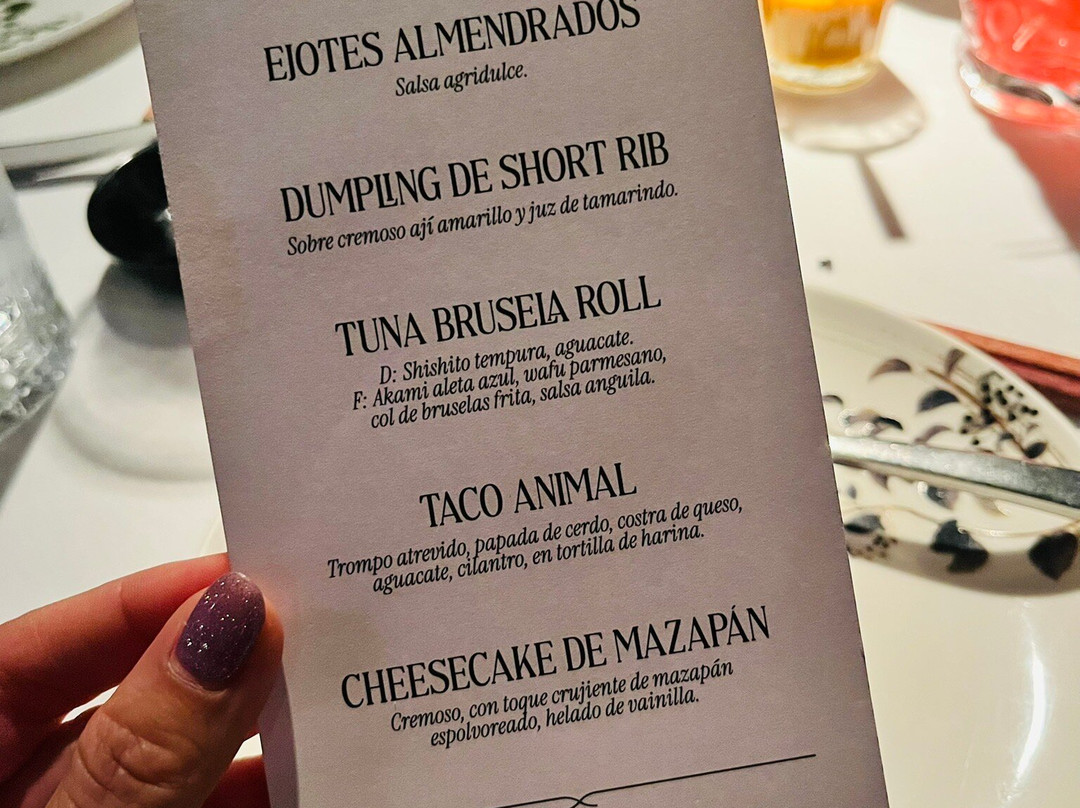 EJOTES ALMENDRADOS
Salsa agridulce.
DUMPLING DE SHORT RIB
Sobre cremoso ají amarillo y juz de tamarindo.
TUNA BRUSELA ROLL
D: Shishito tempura, aguacate.
F: Akami aleta azul, wafu parmesano,
col de bruselas frita, salsa anguila.
TACO ANIMAL
Trompo atrevido, papada de cerdo, costra de queso,
aguacate, cilantro, en tortilla de harina.
CHEESECAKE DE MAZAPÁN
Cremoso, con toque crujiente de mazapán
espolvoreado, helado de vainilla.